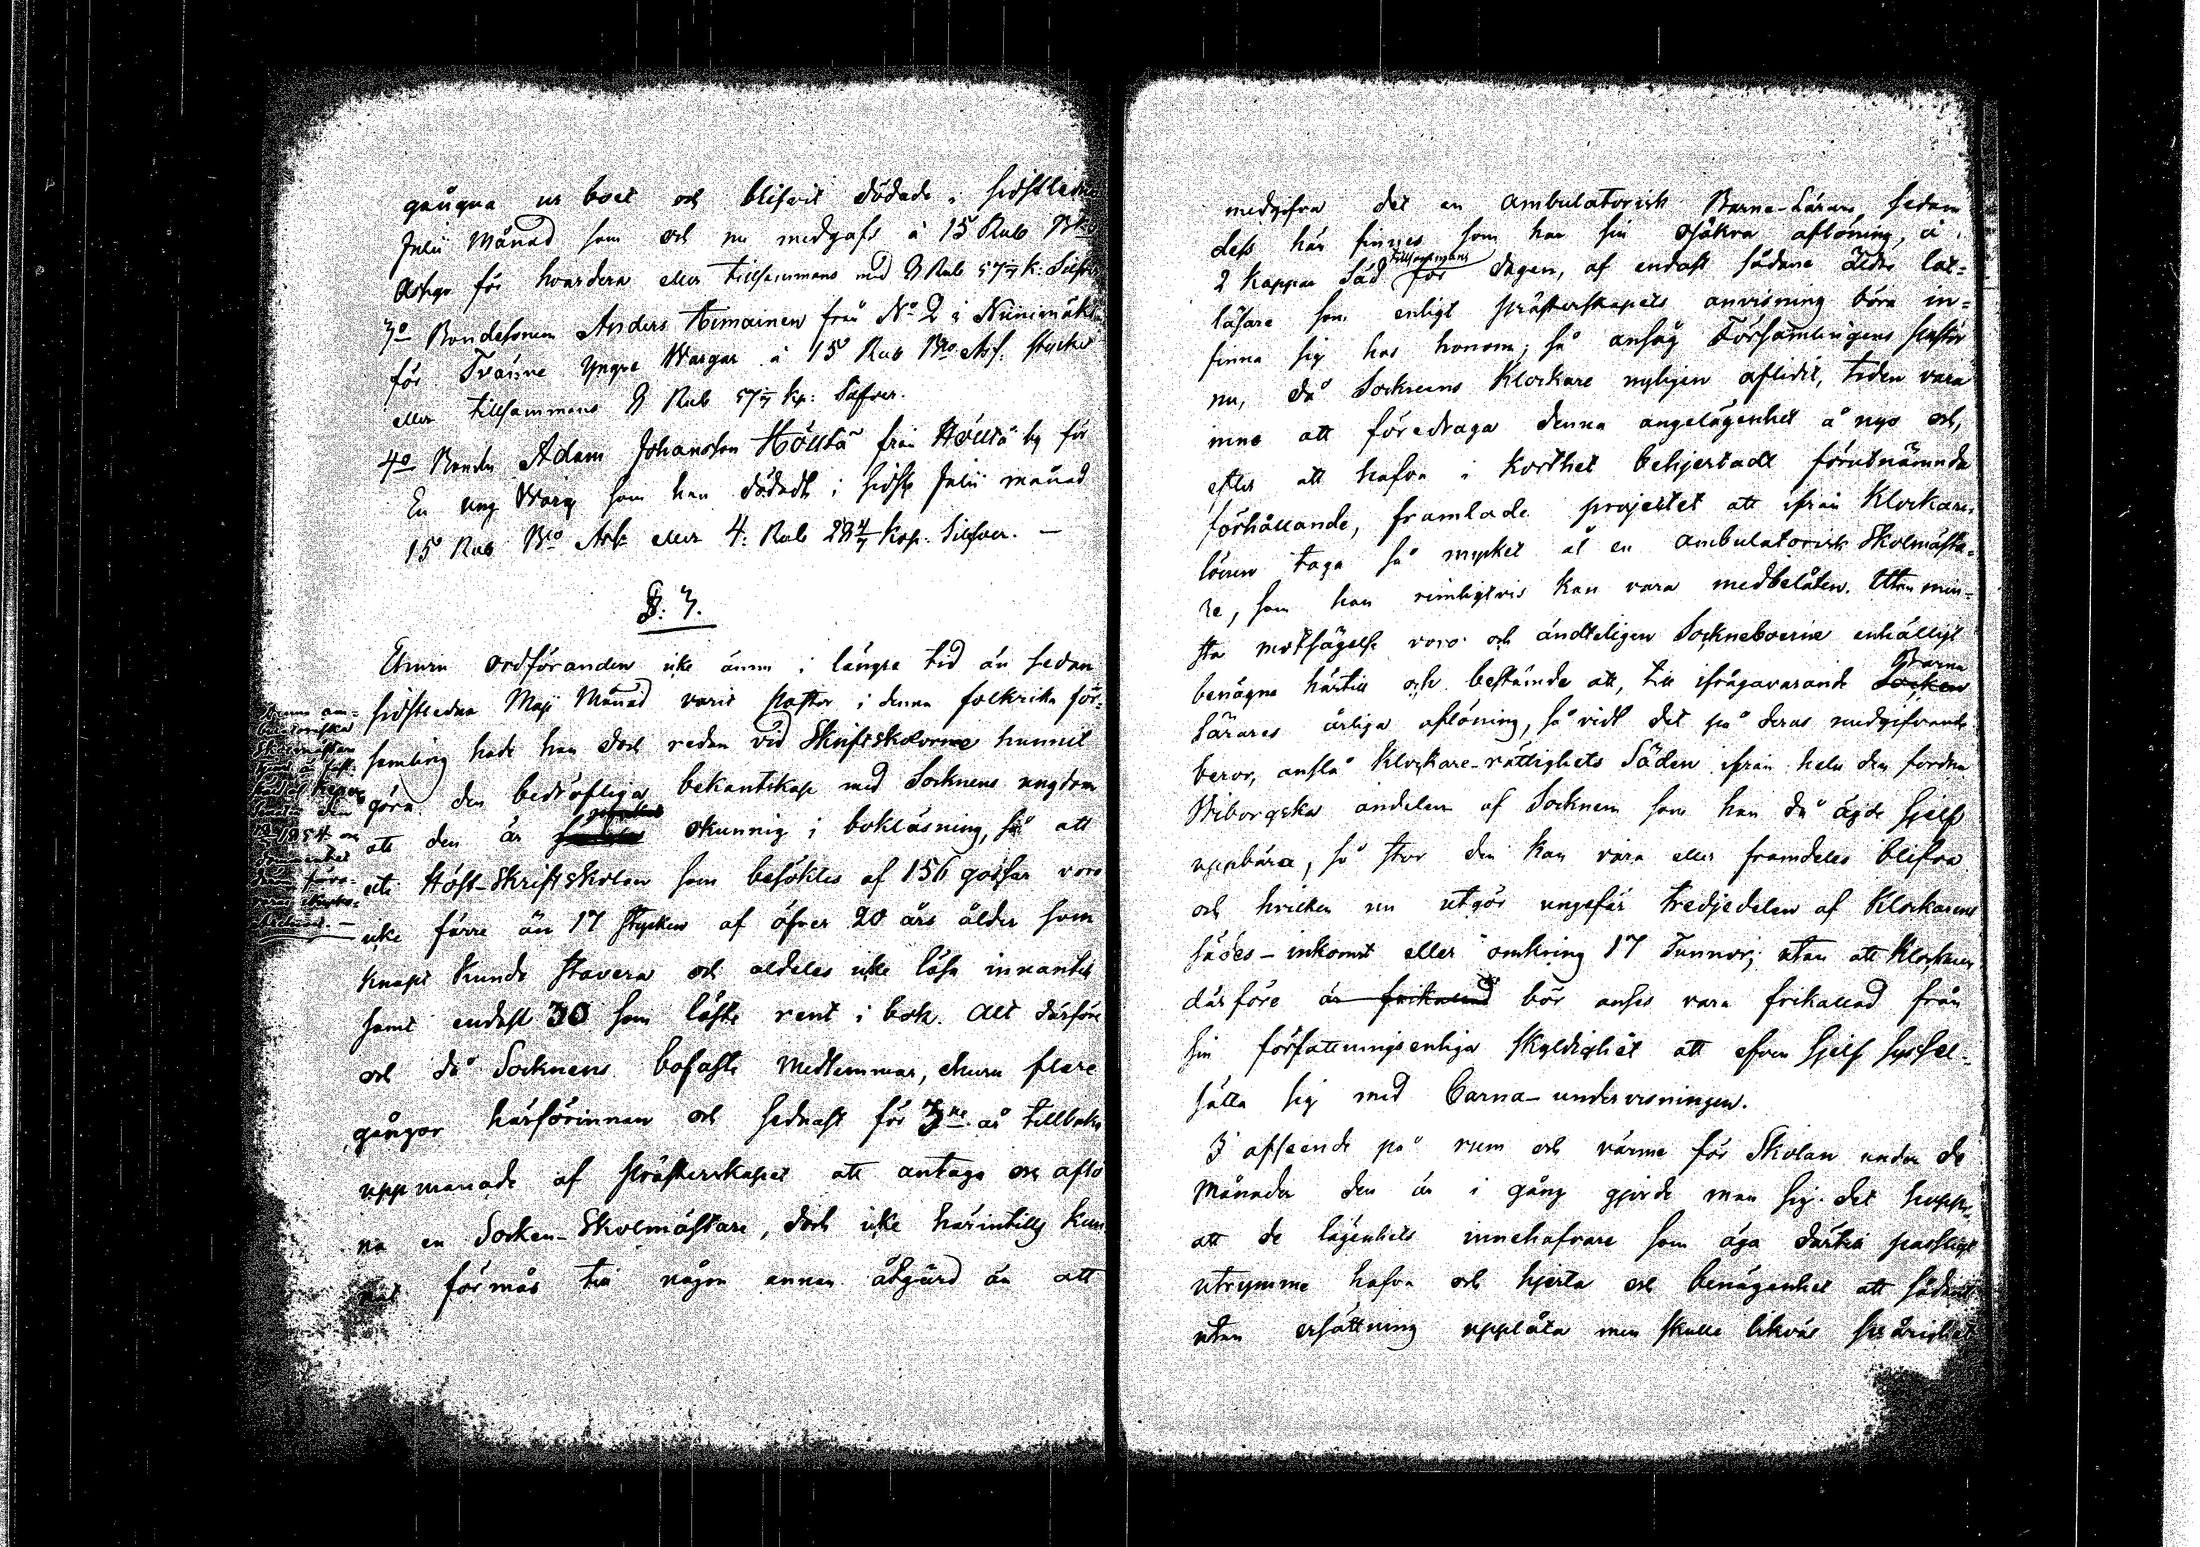 gångna ur boet och blifvit dödade i sidstledne
Julii Månad som och nu medgafs à 15 Rub Bko
för hvardera eller tillsammans med 8 Rub 57 1/7 k: Silfver
3o Bondesonen Anders Aimainen från No 2 i Niinimäki
för Tvänne yngre Wargar à 15 Rub Bko Ass. stycket
eller tillsammans 8 Rub 57 1/7 kp: Silfver.
4o Bonden Adam Johansson Hölttä från Hölttä by för
En ung Warg som han dödadt i sidste Julii månad
15 Rub Bko Ass eller 4. Rub 28 4/7 kop. Silfver. —
§. 3.
Ehuru ordföranden icke ännu i längre tid än sedan
sidstledne Maji Månad varit Pastor i denna folkrika för-
samling hade han dock redan vid Skriftskolorne hunnit
göra den bedröfliga bekantskap med Socknens ungdom
att den är okunnig i bokläsning, så att
uti Höst-Skriftskolan som besöktes af 156 gossar voro
icke färre än 17 stycken af öfver 20 års ålder som
knapt kunde stavera och aldeles icke läsa innantill
samt endast 30 som läste rent i bok. Alt därföre
och då Socknens bofaste medlemmar, ehuru flere
gånger härförinnan och sednast för 3ne år tillbaka
uppmanade af Prästerskapet att antaga och aflö
na en Socken-Skolmästare, dock icke härintills kun
nat förmås till någon annan åtgärd än att
medgifva det en ambulatorisk Barna-Lärare, sedan
dess här finnes som har sin osäkra aflöning, à
2 kappar Säd tillsammans för dagen, af endast sådane äldre lat-
läsare som enligt Prästerskapets anvisning böra in-
finna sig hos honom; så ansåg Församlingens Pastor
nu, då Socknens Klockare nyligen aflidit, tiden vara
inne att föredraga denna angelägenhet å nyo och,
efter att hafva i korthet behjertadt förutnämnda
förhållande, framlade projectet att ifrån Klockare-
lönen taga så mycket åt en ambulatorisk Skolmästa-
re, som han rimligtvis kan vara medbelåten. Utan min-
sta motsägelse voro och ändteligen Sockneboerne enhälligt
benägne härtill och bestämde att, till ifrågavarande Socken Barna
Lärares årliga aflöning, så vidt det på deras medgifvande
beror, anslå Klockare-rättighets Säden ifrån hela den fordna
Wiborgska andelen af Socknen som han då ägde sjelf
uppbära, så stor den kan vara eller framdeles blifva
och hvilken nu utgör ungefär tredjedelen af Klockarens
sädes-inkomst eller omkring 17 Tunnor; utan att Klockaren
därföre är frikallad bör anses vara frikallad från
sin författningsenliga skyldighet att efven sjelf syssel-
sätta sig med Barna-undervisningen.
I afseende på rum och värme för Skolan under de
Månader den är i gång gjorde man sig det hopp,
att de lägenhets innehafvare som äga därtill passligt
utrymme hafva och hjerta och benägenhet att sådant
utan ersättning upplåta men skulle likväl svårighet